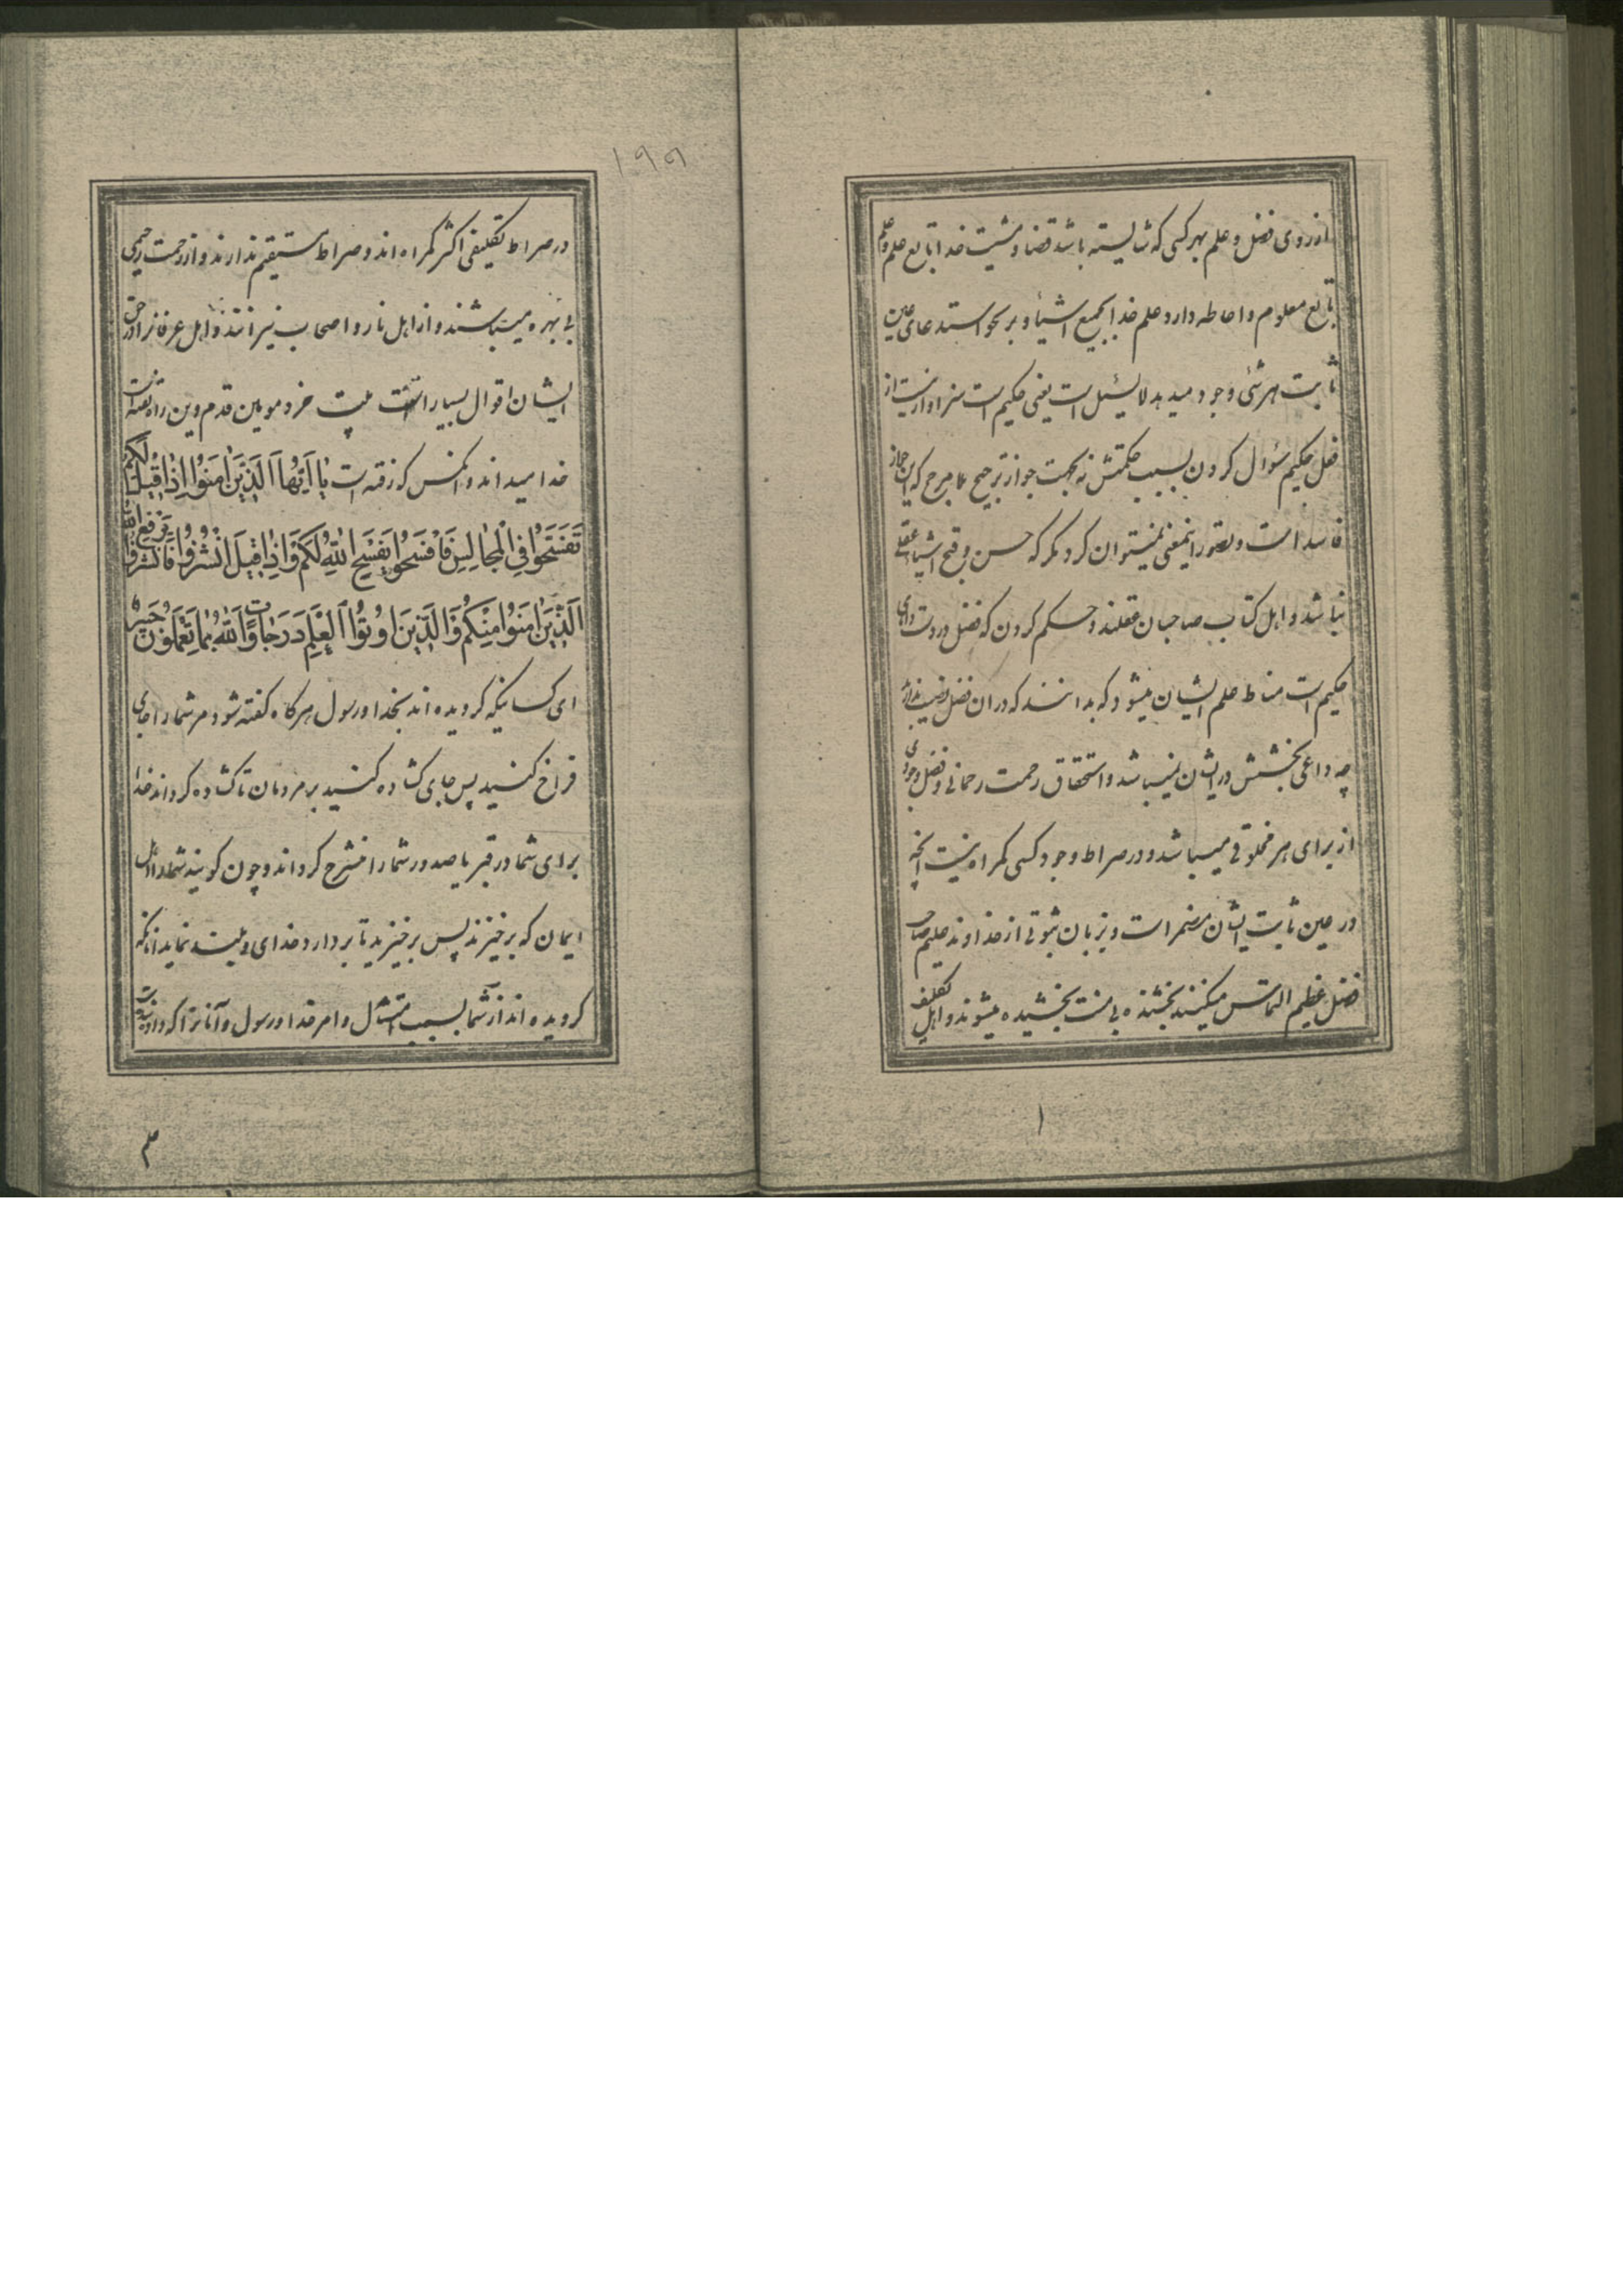 از روی فضل و علم بهر کسی که شایسته باشد قضا و مشیت خدا تابع علم و علم
تابع معلوم و احاطه دارد علم خدا بجمیع اشیا و بر نحو استدعای عین
ثابت هر شئ وجود میدهد لا یسئل است یعنی حکیم است سزاوار نیست از
فعل حکیم سؤال کردن بسبب حکمتش نه بجهت جواز ترجیح بلا مرجح که این جواز
فاسد است و تصور اینمعنی نمیتوان کرد مگر که حسن و قبح اشیا عقلی
نباشد و اهل کتاب صاحبان عقلند و حکم کردن که فضل در دست
حکیم است مناط علم ایشان میشود که بدانند که در آن فضل نصیب ندارند
چه داعی بخشش در ایشان نیباشد و استحقاق رحمت رحمانی و فضل وجودی
از برای هر مخلوقی میباشد و در صراط وجود کسی کمراه نیست آنچه
در عین ثابت ایشان مضمر است و بزبان ثبوتی از خداوند علیم صاحب
فضل عظیم التماس میکنند بخشنده بی منت بخشیده میشوند و اهل تکلیف
۱
۱۹۹
در صراط تکلیفی اکثر کمراه اند و صراط مستقیم ندارند و از رحمت رحیمی
بی بهره میباشند و از اهل نار و اصحاب نیرانند و اهل عرفانرا در حق
ایشان اقوال بسیار است بیت خرد مو بین قدم وین راه تفته است
خدا میداند و آنکس که رفته است یٰا اَیُّهَا الَّذینَ اٰمَنُوا اِذٰا قیلَ لَکُمْ
تَفَسَّحُوا فِی الْمَجٰالِسِ فَافْسَحُوا یَفْسَحِ اللّٰهُ لَکُمْ وَاِذٰا قیلَ انْشُزُوا فَانْشُزُوا یَرْفَعِ اللّٰهُ
الَّذینَ اٰمَنُوا مِنْکُمْ وَالَّذینَ اُوتُوا الْعِلْمَ دَرَجٰاتٍ وَاللّٰهُ بِمٰا تَعْمَلُونَ خَبیرٌ
ای کسانیکه کرویده اند بخدا و رسول هر کاه کفته شود مر شما را جای
فراخ کنید پس جای کشاده کنید بر مردمان تا کشاده کرداند خدا
برای شما در قبر یا صدور شما را منشرح کرداند و چون کویند شما را اهل
ایمان که برخیزند پس برخیزید تا بردارد خدای و بلند نماید آنانکه
کرویده اند از شما بسبب امتثال و امر خدا و رسول و آنانرا که داده شده